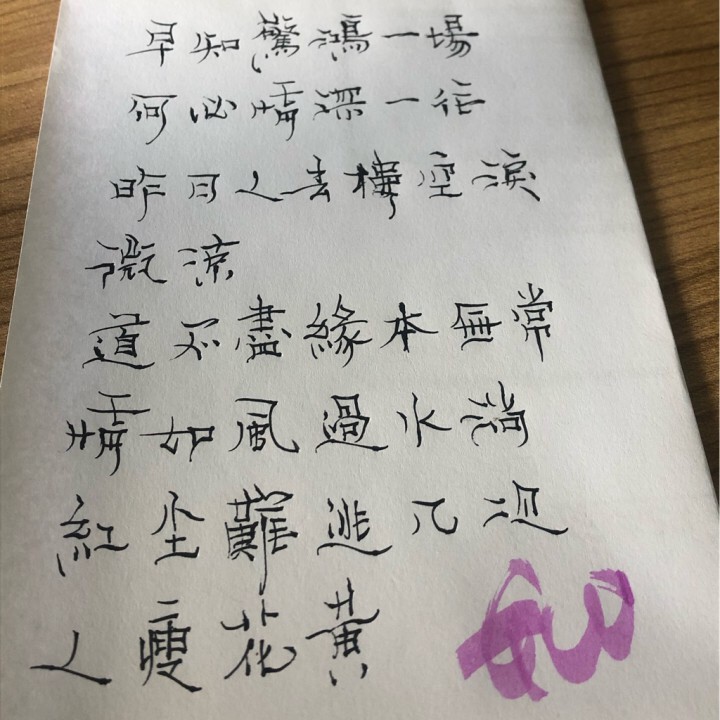 早知驚鴻一場
何必情深一往
昨日人去樓空淚
微涼
道不盡緣本無常
情如風過水淌
紅尘難逃几
人瘦花黃